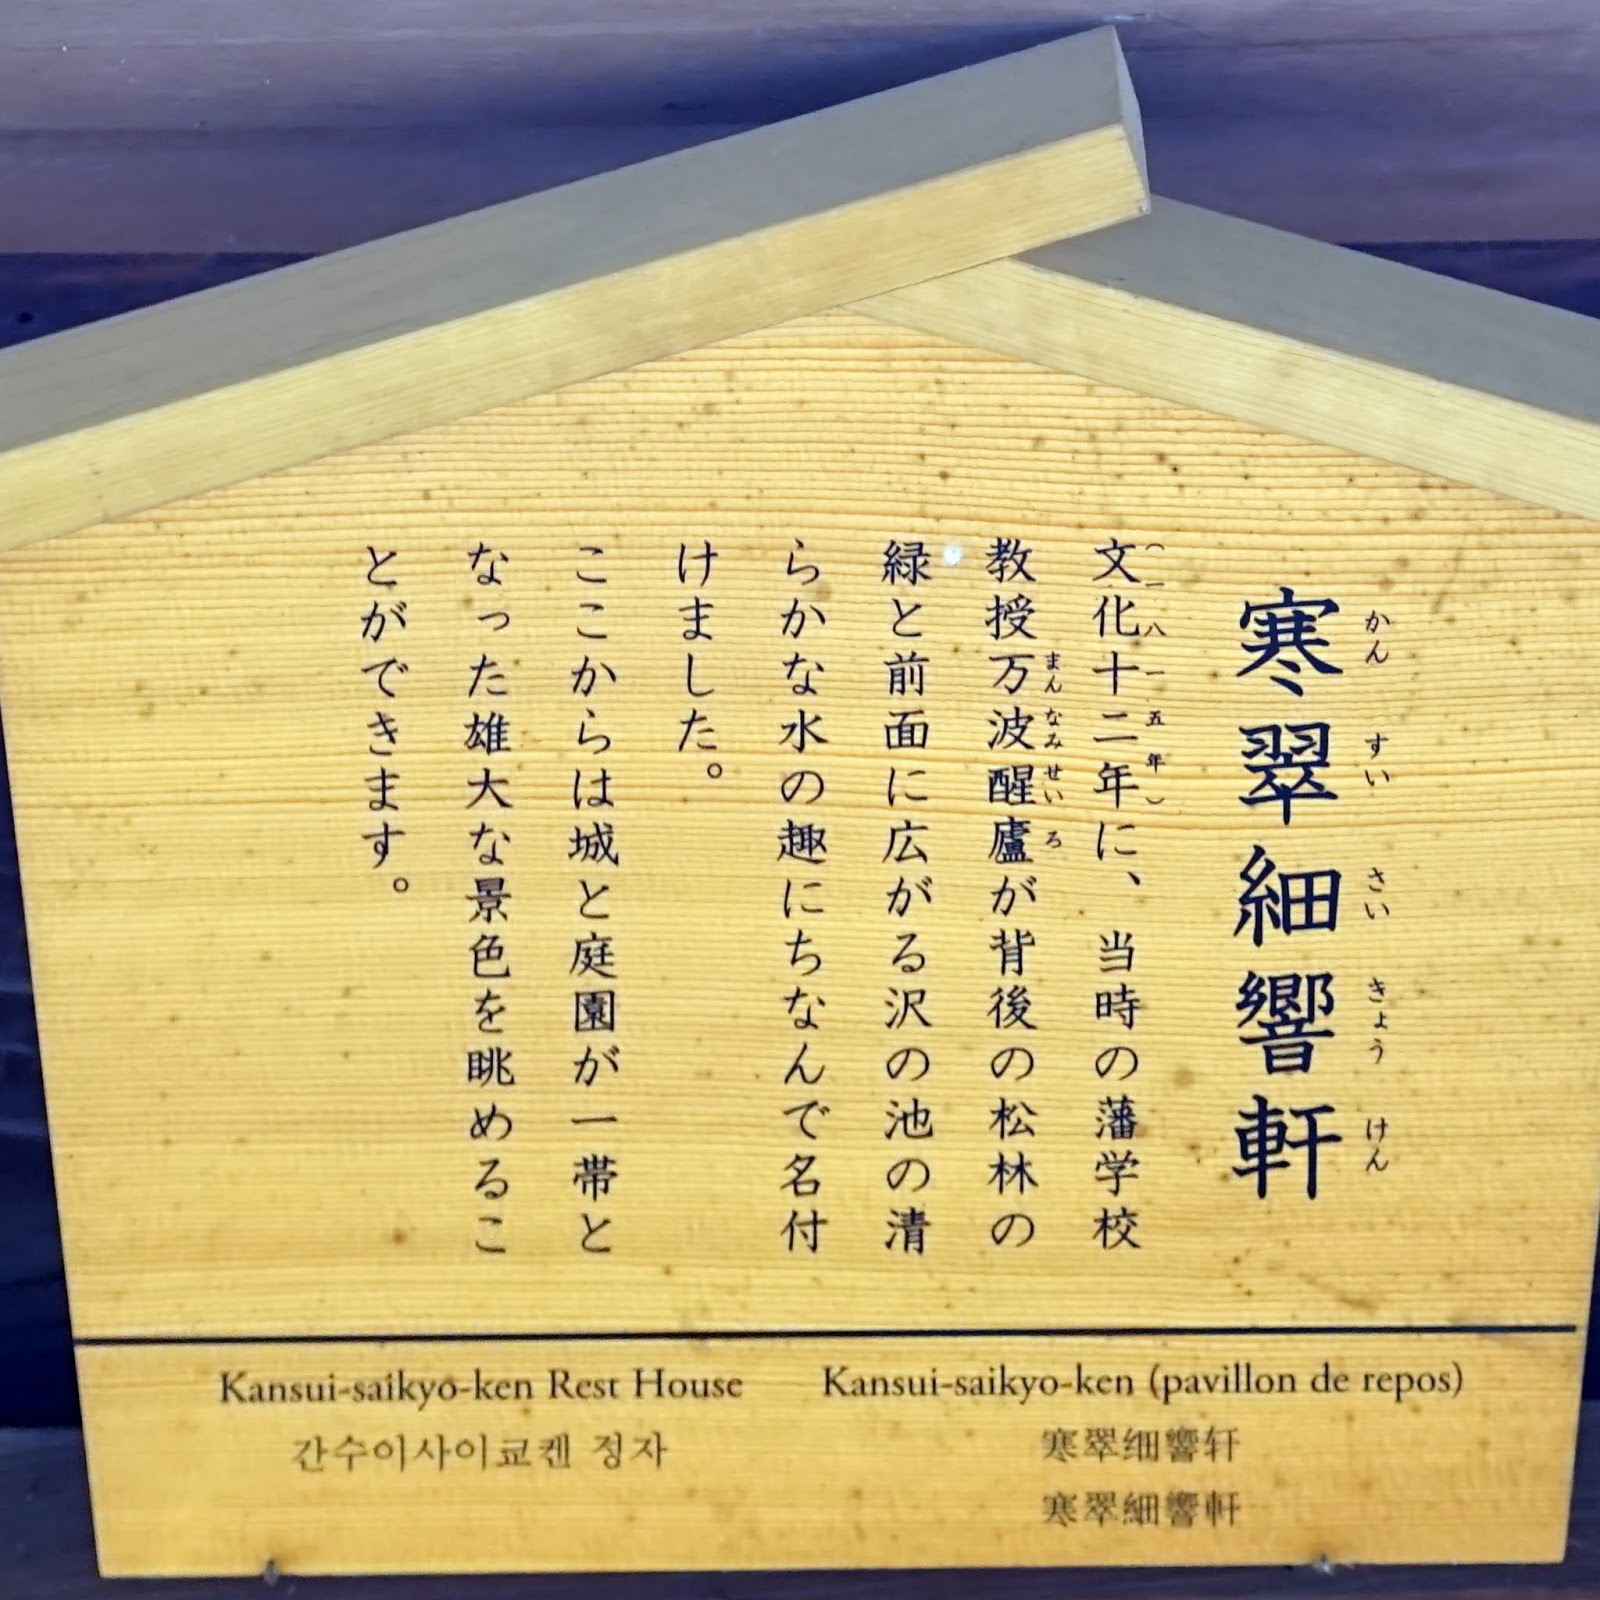 寒翠細響軒
かん すい さい きょう けん
文化十二年に、当時の藩学校
（一八一五年）
教授万波醒廬が背後の松林の
まんなみせいろ
緑と前面に広がる沢の池の清
らかな水の趣にちなんで名付
けました。
ここからは城と庭園が一帯と
なった雄大な景色を眺めるこ
とができます。
Kansui-saikyo-ken Rest House
간수이사이쿄켄 정자
Kansui-saikyo-ken (pavillon de repos)
寒翠细響轩
寒翠細響軒